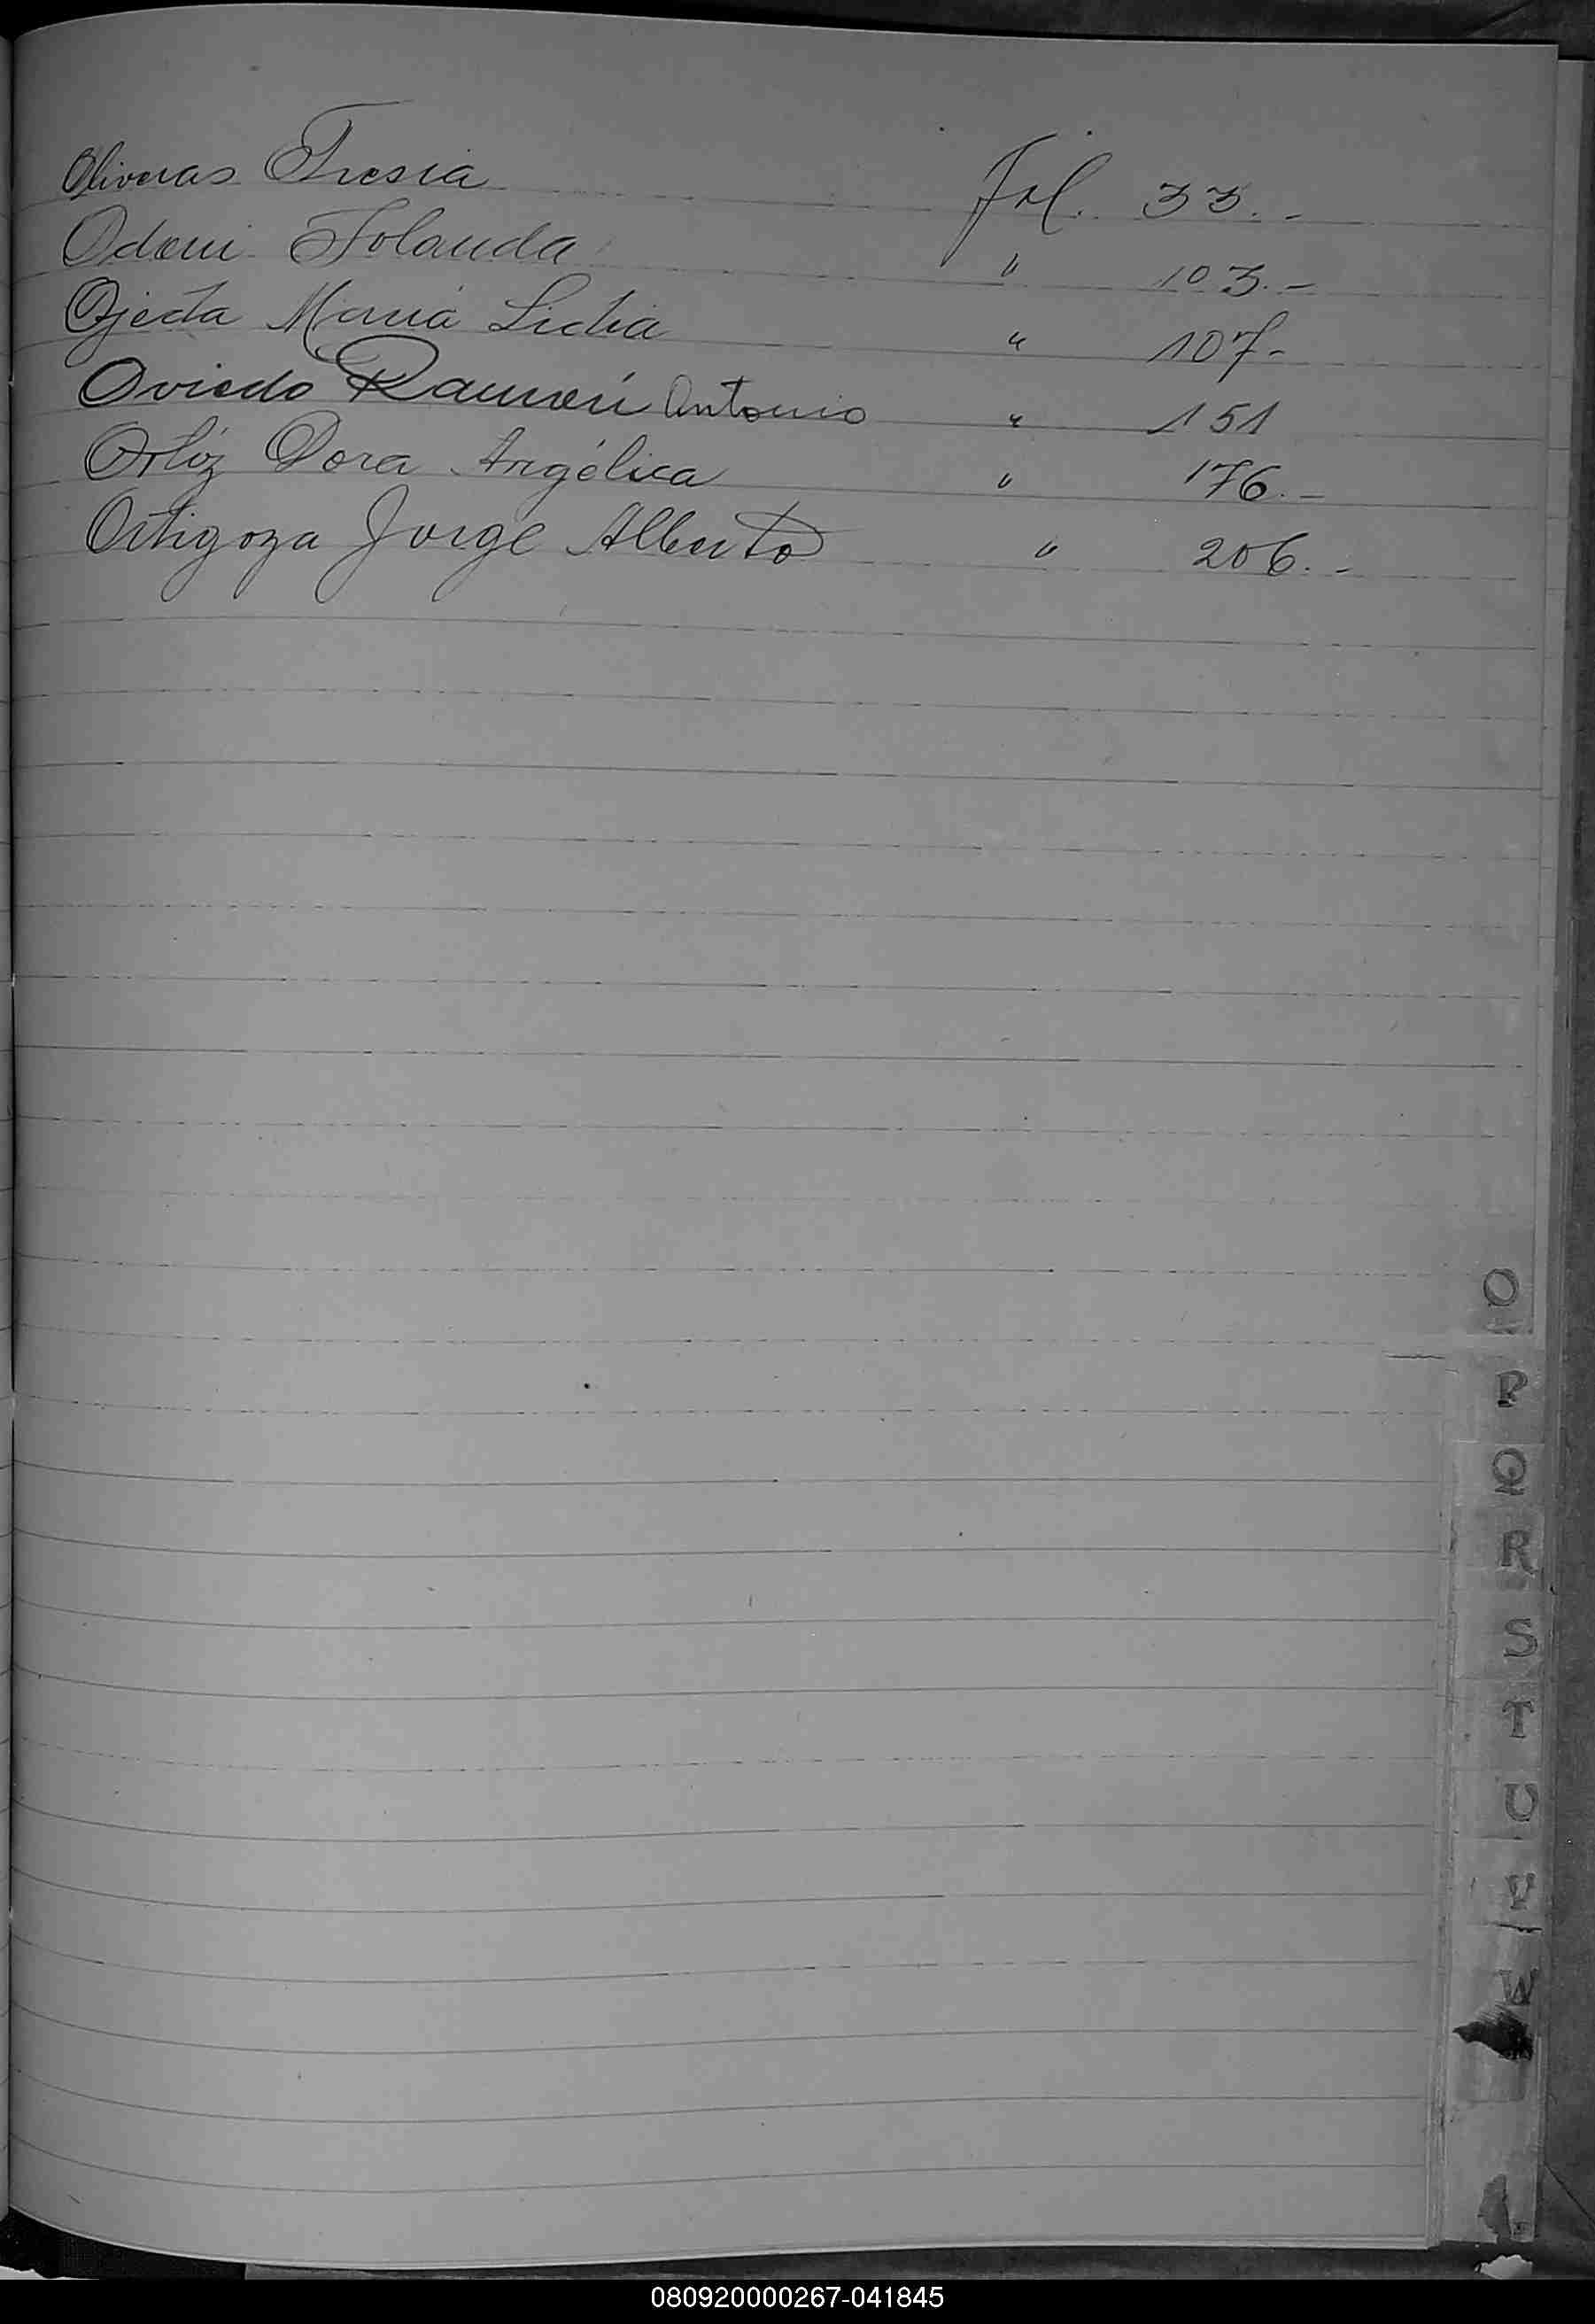 Oliveras Fresia Fol. 33.-
Odoni Iolanda " 103.-
Ojeda María Lidia " 107-
Oviedo Ramón Antonio " 151
Ortíz Dora Angélica " 176.-
Ortigoza Jorge Alberto " 206.-
O
P
Q
R
S
T
U
V
W
080920000267-041845